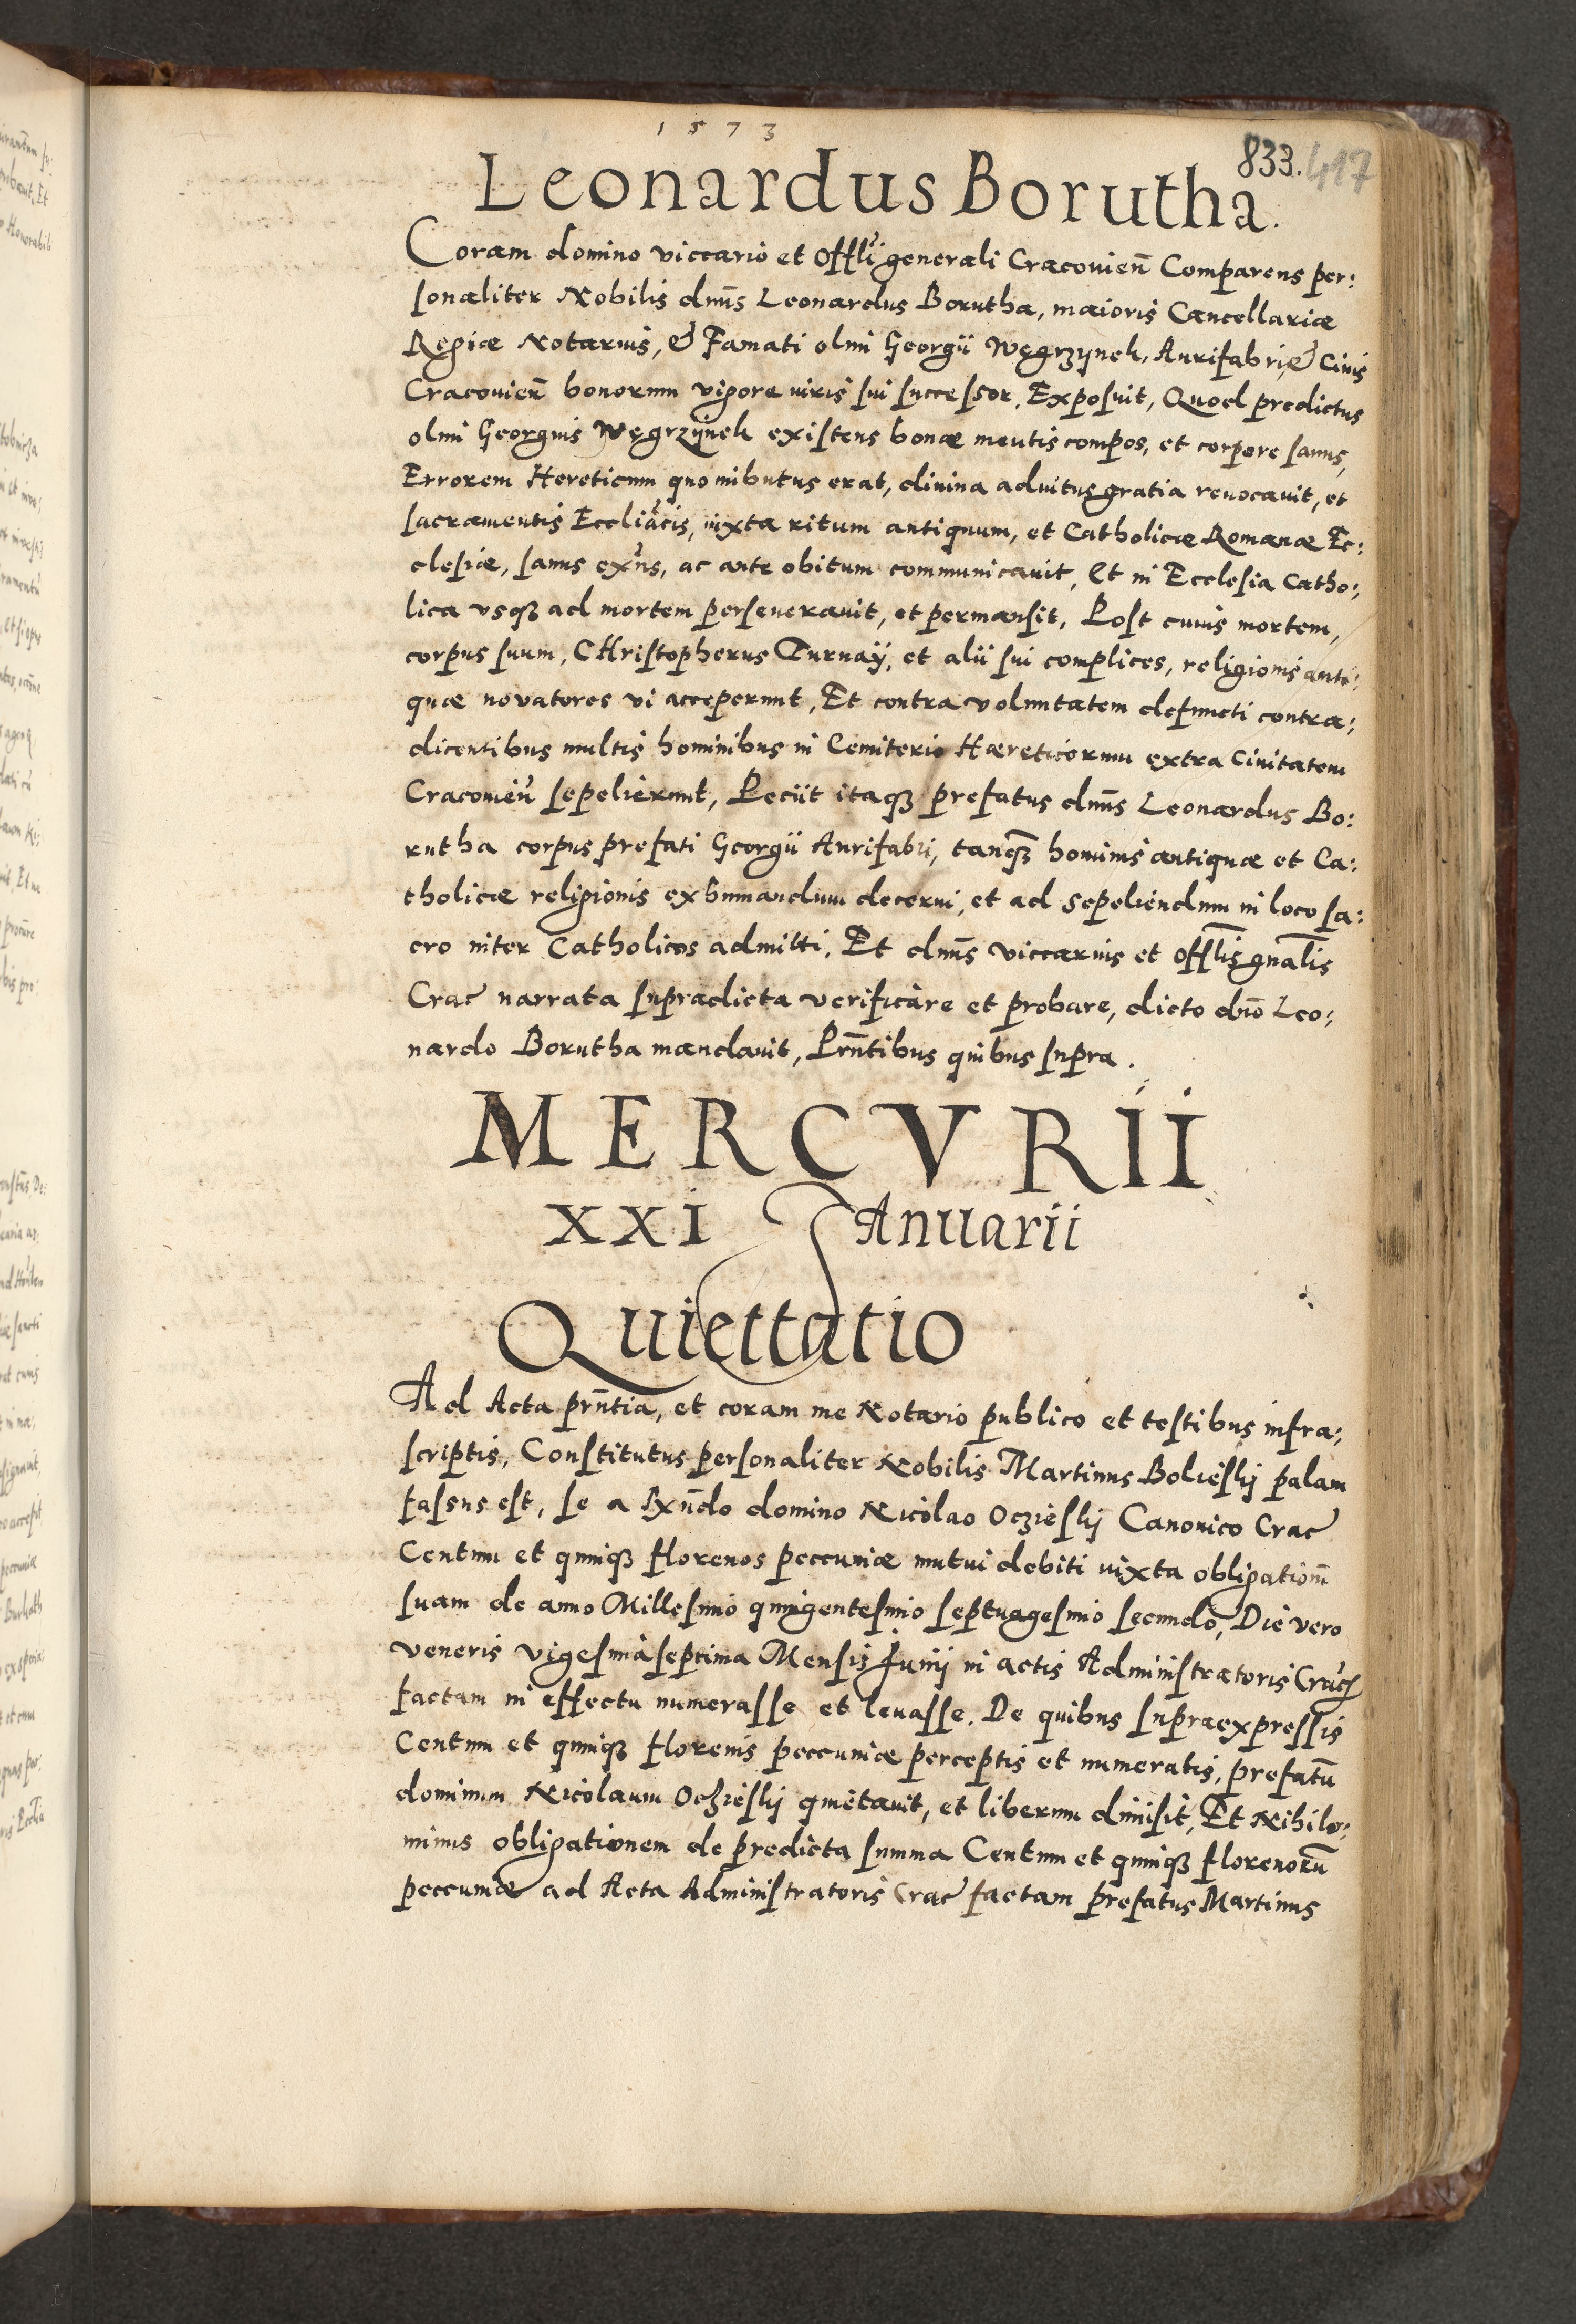 1573
833. 417
Leonardus Borutha.
Coram domino viccario et Offli generali Cracovien̄ Comparens per:
sonaliter Nobilis dnūs Leonardus Borutha, maioris Cancellariæ
Regiæ Notarius, & Famati olim Georgii Węgrzynek, Aurifabri, & Civis
Cracovien̄ bonorum vigore iuris sui successor, Exposuit, Quod predictus
olim Georgius Węgrzÿnek existens bonæ mentis compos, et corpore sanus,
Errorem Hereticum quo imbutus erat, divina adiutus gratia revocavit, et
sacramentis Eccliācis, iuxta ritum antiquum, et Catholicæ Romanæ Ec:
clesiæ, sanus exn̄s, ac ante obitum communicavit, Et in Ecclesia Catho:
lica usqȝ ad mortem perseveravit, et permansit, Post cuius mortem,
corpus suum, CHristopherus Turnaÿ, et alii sui complices, religionis anti:
quæ novatores vi acceperunt, Et contra voluntatem defuncti contra:
dicentibus multis hominibus in Cemiterio Hæreticorum extra Civitatem
Cracovien̄ sepelierunt, Peciit itaqȝ prefatus dnūs Leonardus Bo:
rutha corpus prefati Georgii Aurifabri, tanqȝ hominis antiquæ et Ca:
tholicæ religionis exhumandum decerni, et ad sepeliendum in loco sa:
cro inter Catholicos admitti. Et dnūs viccarius et offlis gnālis
Crac narrata supradicta verificare et probare, dicto dnō Leo:
nardo Borutha mandavit, Prn̄tibus quibus supra.
MERCVRII
XXI JAnuarii
Quiettatio
Ad Acta prn̄tia, et coram me Notario publico et testibus infra:
scriptis, Constitutus personaliter Nobilis Martinus Bolieskÿ palam
fassus est, se a Rxn̄do domino Nicolao Oczieskÿ Canonico Crac
Centum et quinqȝ florenos peccuniæ mutui debiti iuxta obligationm̄
suam de anno Millesimo quingentesimo septuagesimo secundo, Die vero
veneris vigesima septima Mensis Junÿ in actis Administratoris Craców
factam in effectu numerasse et levasse. De quibus supraexpressis
Centum et quinqȝ florenis peccuniæ perceptis et numeratis, prefatū
dominum Nicolaum Oczieskÿ quietavit, et liberum dimisit, Et Nihilo:
minus obligationem de predicta summa Centum et quinqȝ florenorū
peccuniæ ad Acta Administratoris Crac factam prefatus Martinus